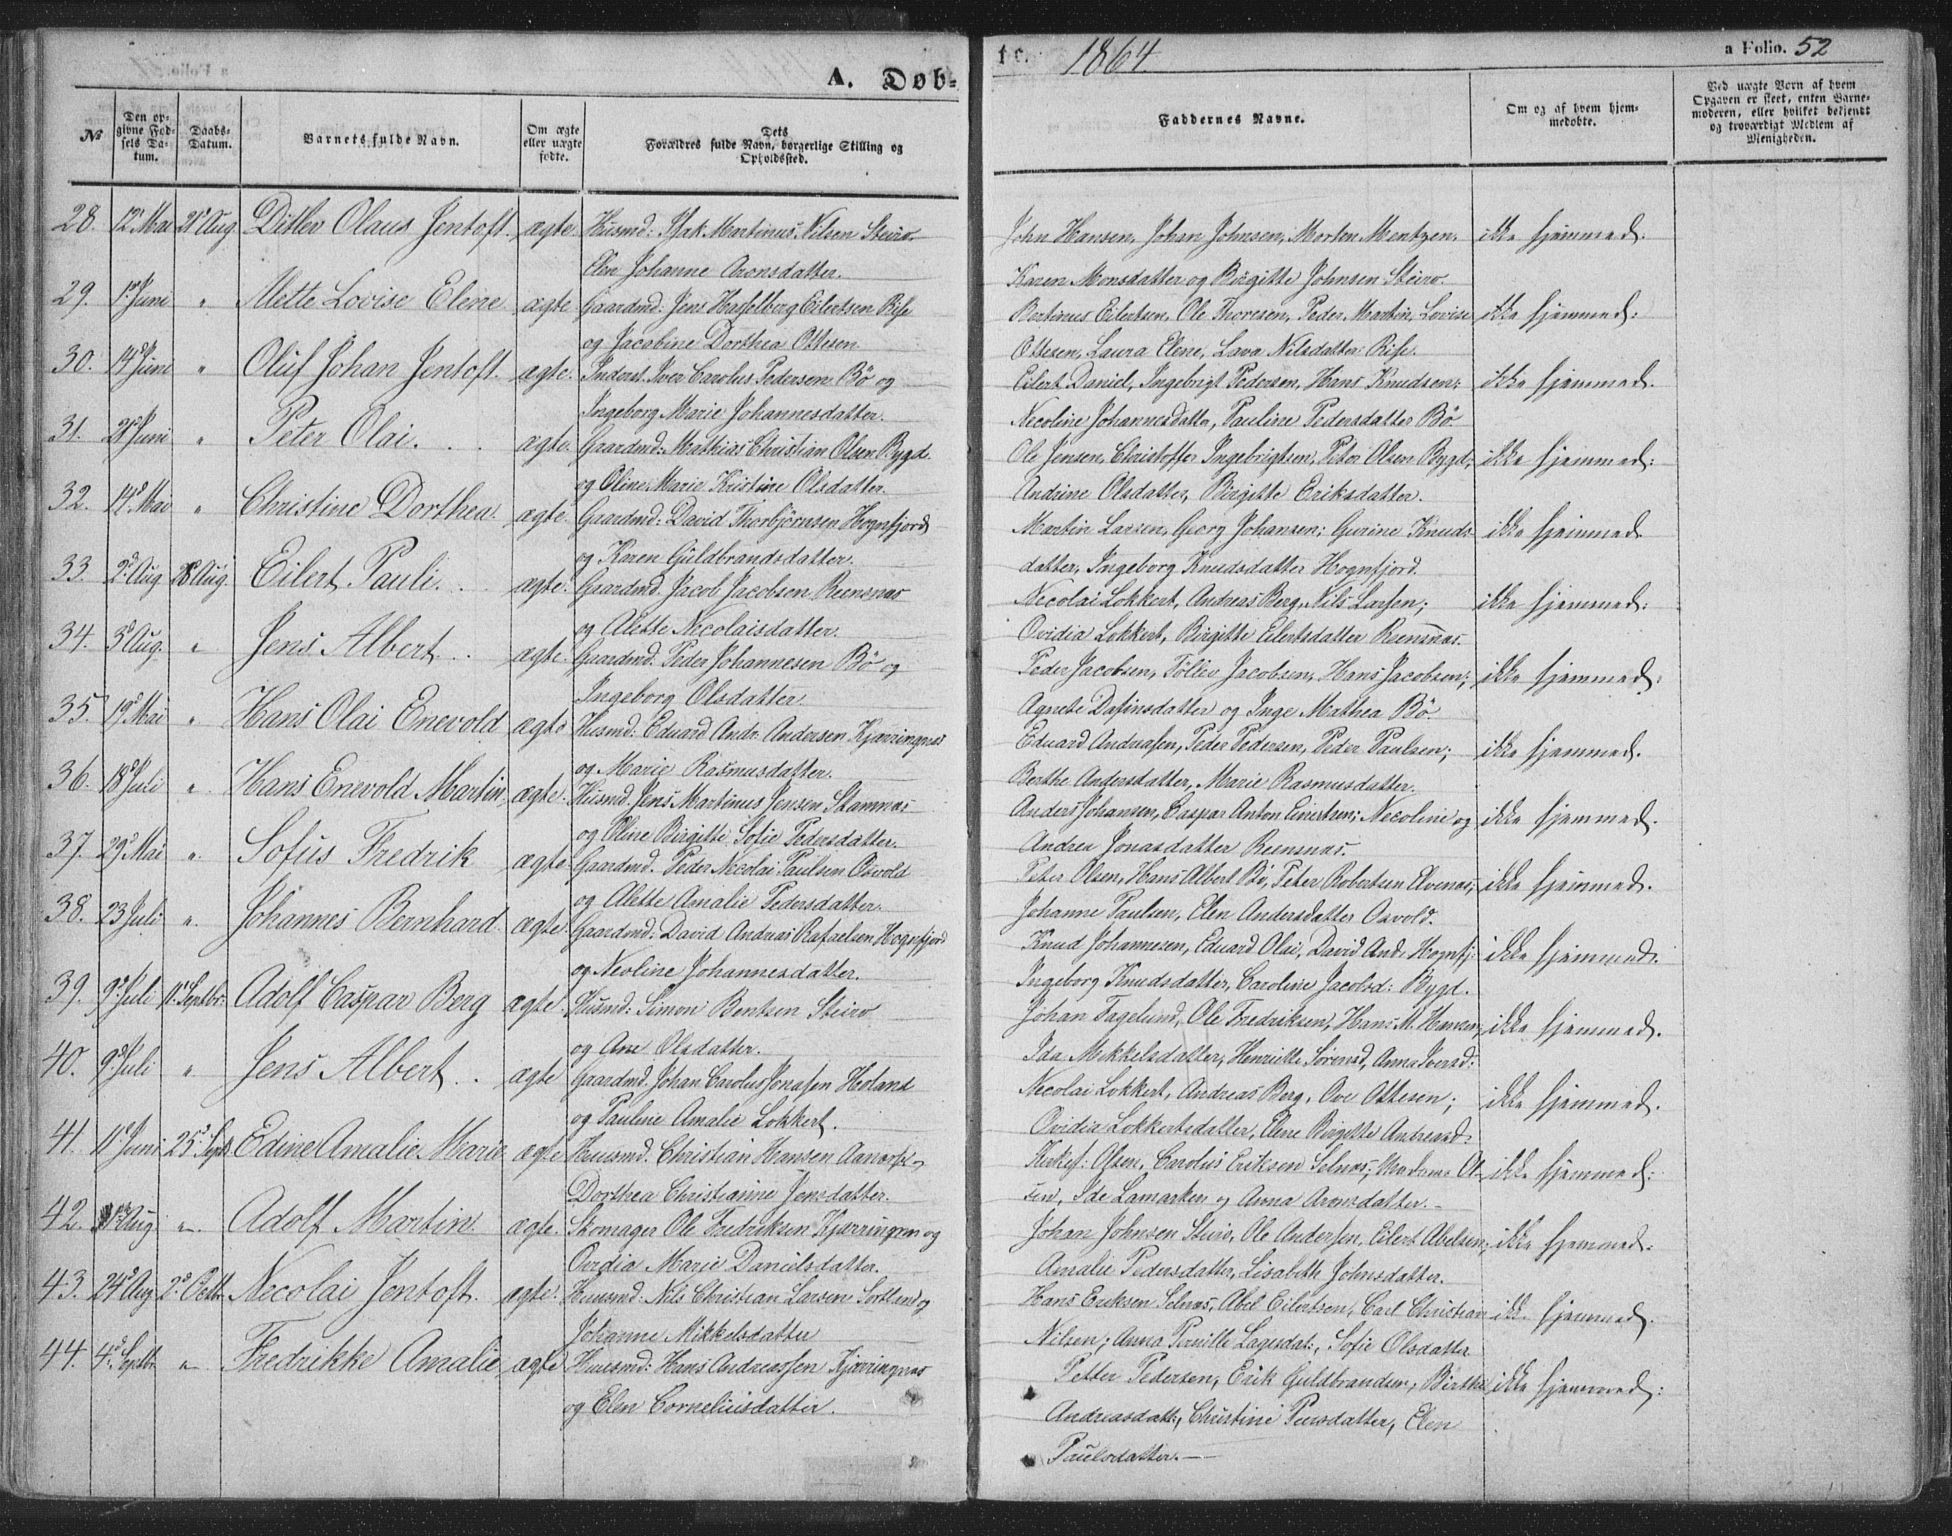 A. Døb-
te. 1864. a Folio. 52
№
Den op-
givne Fød-
sels Da-
tum.
Daabs-
Datum.
Barnets fulde Navn.
Om ægte
eller uægte
fødte.
Dets
Forældres fulde Navn, borgerlige Stilling og
Opholdssted.
Faddernes Navne.
Om og af hvem hjem-
medøbte.
Ved uægte Børn af hvem
Opgaven er skeet, enten Barne-
moderen, eller hvilket betjendt
og troværdigt Medlem af
Menigheden.
28. 12te Mai 21de Aug Ditlev Olaus Jentoft. ægte. Husmd: Isak Martinus Nilsen Steiro.
Elen Johanne Aronsdatter.
John Hansen, Johan Johnsen, Morten Mentzen, ikke hjemmed.
Karen Monsdatter og Birgitte Johnsen Steiro.
29. 1ste Juni " Mette Lovise Elene ægte Gaardmd: Jens Hasselberg Eilertsen Rise
og Jacobine Dorthea Ottesen.
Bertinus Eilertsen, Ole Thoresen, Peder Martin, Lovise ikke hjemmed:
Ottesen, Laura Elene, Lava Nilsdatter Rise.
30. 14de Juni " Oluf Johan Jentoft. ægte. Inderst. Iver Carolus Pedersen Bö og
Ingeborg Marie Johannesdatter.
Eilert Daniel, Ingebrigt Pedersen, Hans Knudsen; ikke hjemmed.
Necoline Johannesdatter, Pauline Pedersdatter Bö
31. 21de Juni " Peter Olai. ægte. Gaardmd: Mathias Christian Olsen Bygd
og Oline Marie Kristine Olsdatter.
Ole Jensen, Christoffer Ingebrigtsen, Peter Olsen Bygd, ikke hjemmed:
Andrine Olsdatter, Birgitte Eriksdatter.
32. 14de Mai " Christine Dorthea. ægte. Gaardmd: David Thorbjörnsen Hognfjord
og Karen Guldbrandsdatter.
Martin Larsen, Georg Johansen; Gurine Knuds- ikke hjemmed
datter, Ingeborg Knudsdatter Hognfjord.
33. 2de Aug 28 Aug. Eilert Pauli. ægte. Gaardmd. Jacob Jacobsen Reensnæs
og Alette Necolaisdatter.
Necolai Lokkert, Andreas Berg, Nils Larsen; ikke hjemmed:
Ovidia Lokkert, Birgitte Eilertsdatter Reensnæs.
34. 3de Aug. " Jens Albert ægte. Gaardmd. Peder Johannesen Bö og
Ingeborg Olsdatter.
Peder Jacobsen, Töllev Jacobsen, Hans Jacobsen; ikke hjemmed:
Agnete Dasinsdatter og Inge Mathea Bö.
35. 19de Mai " Hans Olai Enevold ægte Husmd: Eduard Andr. Andersen Kjærringnæs
og Marie Rasmusdatter.
Eduard Andreasen, Peder Pedersen, Peder Paulsen; ikke hjemmed.
Berthe Andersdatter, Marie Rasmusdatter.
36. 18de Juli " Hans Enevold Martin, ægte. Husmd. Jens Martinus Jensen Stamnæs
og Oline Birgitte Sofie Pedersdatter.
Anders Johansen, Caspar Anton Einertsen; Necoline og ikke hjemmed.
Andrea Jonasdatter Reensnæs.
37. 29de Mai " Sofus Fredrik ægte. Gaardmd. Peder Necolai Paulsen Osvold
og Alette Amalie Pedersdatter.
Peter Olsen, Hans Albert Bö, Peter Robertsen Elvenæs; ikke hjemmed.
Johanne Paulsen, Elen Andersdatter Osvold.
38. 23 Juli " Johannes Bernhard ægte. Gaardmd: David Andreas Rafaelsen Hognfjord
og Neoline Johannesdatter.
Knud Johannesen, Eduard Olai, David And: Hognfj: ikke hjemmed.
Ingeborg Knudsdatter, Caroline Jacobsd: Bygd.
39. 9de Juli 11te Septbr: Adolf Caspar Berg ægte. Husmd: Simon Bentsen Steiro
og Ane Olsdatter.
Johan Fagelund, Ole Fredriksen, Hans M. Hansen ikke hjemmed.
Ida Mikkelsdatter, Henriette Sörensd, Anna Iversd:
40. 9de Juli " Jens Albert ægte Gaardmd. Johan Carolus Jonasen Holand
og Pauline Amalie Lokkert.
Necolai Lokkert, Andreas Berg, Ove Ottesen; ikke hjemmed.
Ovidia Lokkertsdatter, Elene Birgitte Andreasd:
41. 11te Juni 25de Sept Edine Amalie Marie ægte Huusmd. Christian Hansen
Dorthea Christianne Jensdatter.
Kirkes: Olsen, Carolus Eriksen Selnæs; Madame Ol- ikke hjemmed:
sen, Ide Lamarker og Anna Aronsdatter.
42. Aug " Adolf Martin ægte. Skomager Ole Fredriksen Kjærringen og
Ovidia Marie Danielsdatter.
Johan Johnsen Steiro, Ole Andersen, Eilert Abelsen, ikke hjemmed:
Amalie Pedersdatter, Lisabeth Johnsdatter.
43. 24de Aug 2de Octbr Necolai Jentoft. ægte. Huusmd. Nils Christian Larsen Sortland og
Johanne Mikkelsdatter
Hans Eriksen Selnæs, Abel Eilertsen, Carl Christian ikke hjemmed.
Nilsen; Anna Pernille Lagesdat:, Sofie Olsdatter
44. 4de Septbr " Fredrikke Amalie ægte Huusmd: Hans Andreassen Kjærringnæs
og Elen Corneliusdatter.
Petter Pedersen, Erik Guldbrandsen, Birthe ikke hjemmed:
Andreasdatt:, Christine Peersdatter, Elen
Paulsdatter.